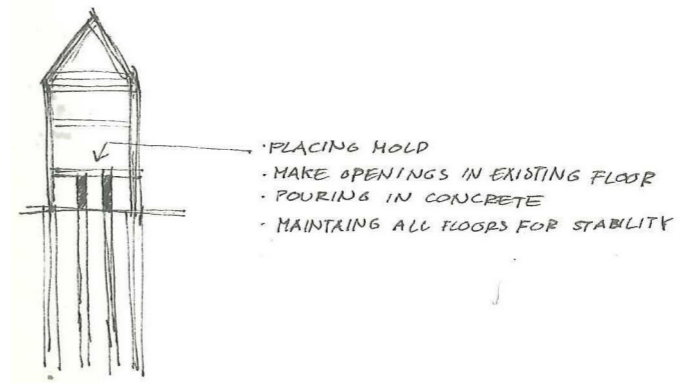 · PLACING MOLD
· MAKE OPENINGS IN EXISTING FLOOR
· POURING IN CONCRETE
· MAINTAING ALL FLOORS FOR STABILITY